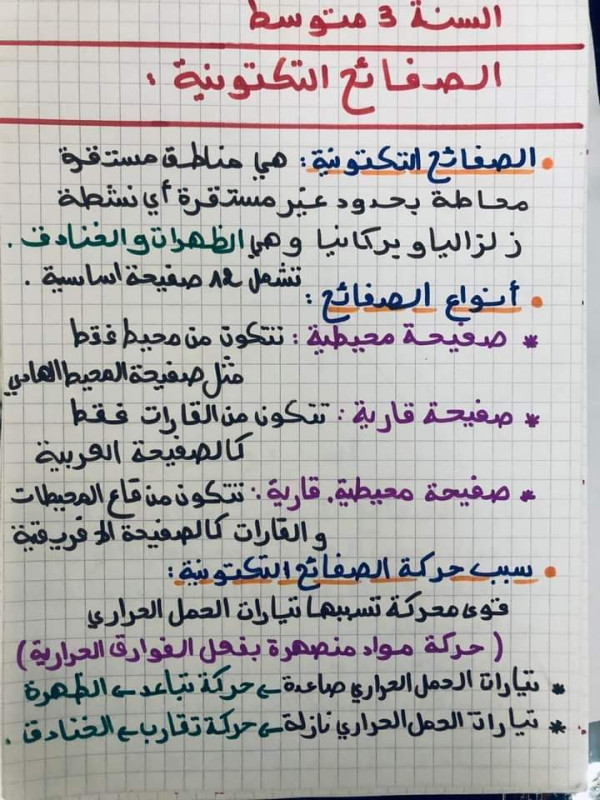 السنة 3 متوسط
الصفائح التكتونية :
• الصفائح التكتونية : هي مناطق مستقرة
محاطة بحدود غير مستقرة أي نشطة
زلزاليا و بركانيا و هي الظهرات و الخنادق .
تشمل 12 صفيحة اساسية .
• أنواع الصفائح :
* صفيحة محيطية : تتكون من محيط فقط
مثل صفيحة المحيط الهادي
* صفيحة قارية : تتكون من القارات فقط
كالصفيحة العربية
* صفيحة محيطية. قارية : تتكون من قاع المحيطات
و القارات كالصفيحة الافريقية
• سبب حركة الصفائح التكتونية :
قوى محركة تسببها تيارات الحمل الحراري
( حركة مواد منصهرة بفعل الفوارق الحرارية )
* تيارات الحمل الحراري صاعدة ← حركة تباعد ← الظهرة
* تيارات الحمل الحراري نازلة ← حركة تقارب ← الخنادق .